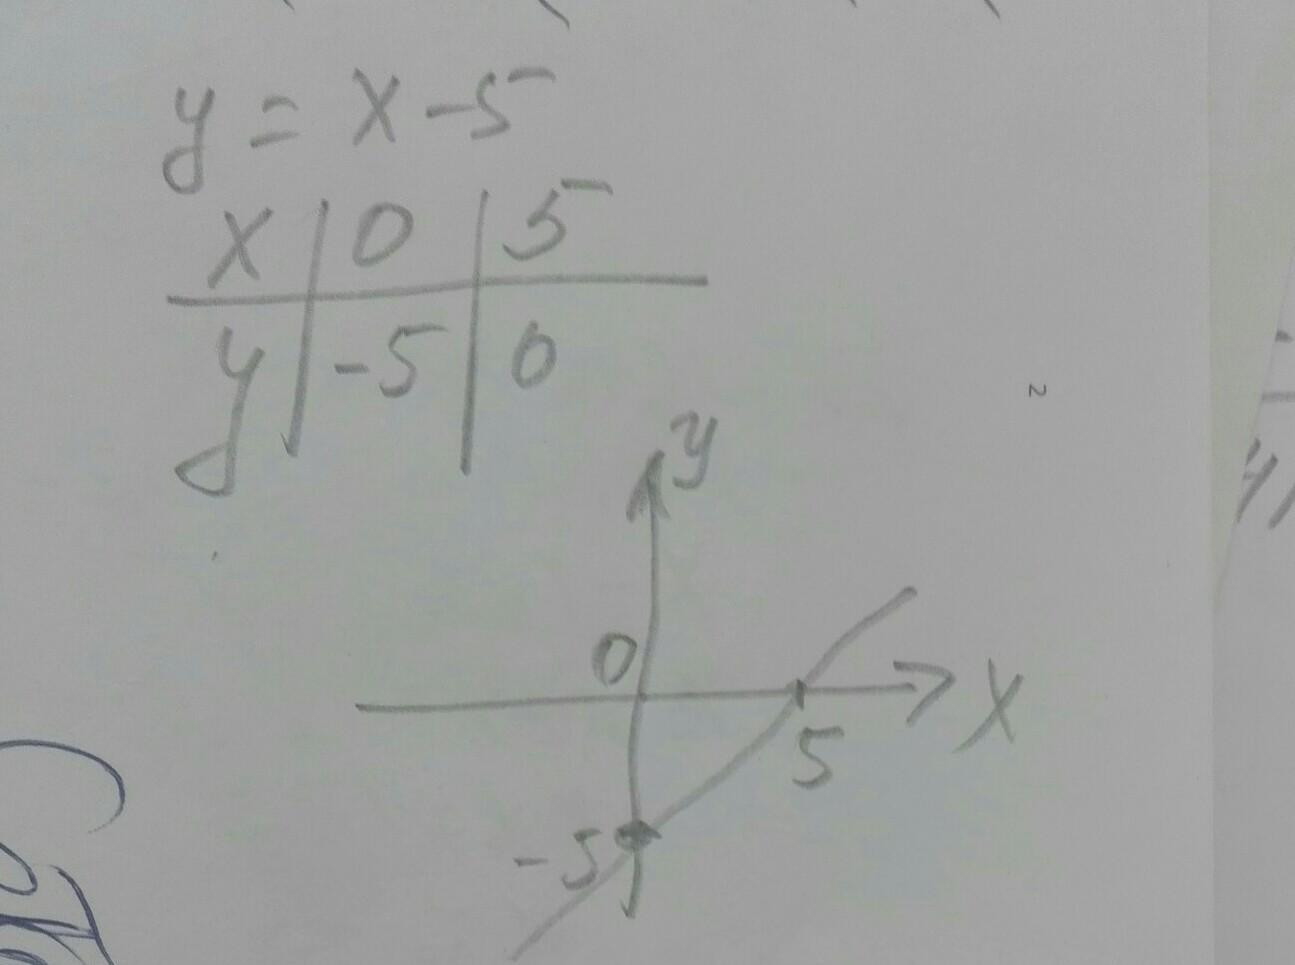 y = x - 5
x | 0 | 5
y | -5 | 0
y
0
x
5
-5